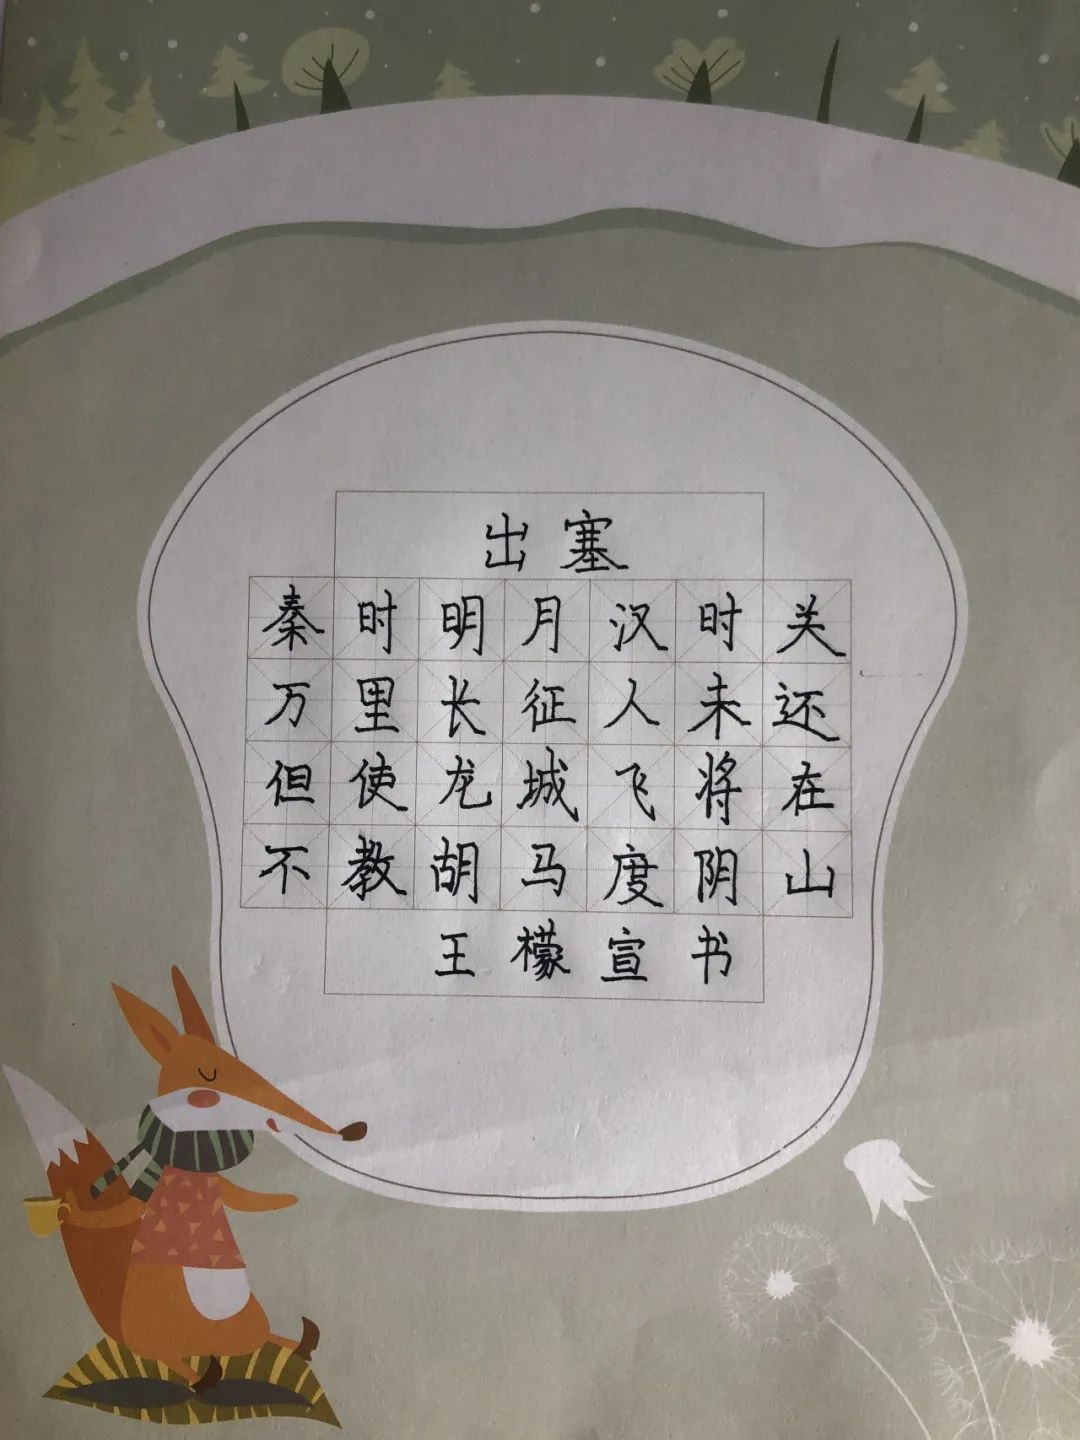 出塞
秦时明月汉时关
万里长征人未还
但使龙城飞将在
不教胡马度阴山
王檬宣书